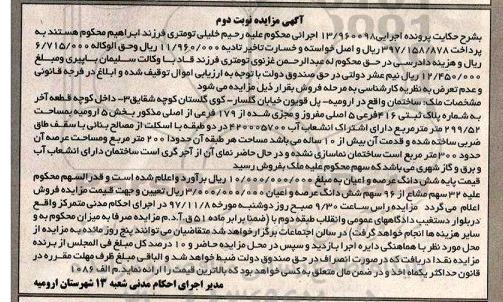 آگهی مزایده نوبت دوم
بشرح حکایت پرونده اجرایی ۱۳/۹۶۰۰۹۸ اجرائی محکوم علیه رحیم خلیلی تومتری فرزند ابراهیم محکوم هستند به
پرداخت ۳۹۷/۱۵۸/۸۷۸ ریال و اصل خواسته و خسارت تاخیر تادیه ۱۱/۹۶۰/۰۰۰ ریال وحق الوکاله ۶/۷۱۵/۰۰۰
ریال و هزینه دادرسی در حق محکوم له عبدالرحمن غزنوی تومتری فرزند قادر با وکالت سلیمان بابیری ومبلغ
۱۲/۴۵۰/۰۰۰ ریال نیم عشر دولتی در حق صندوق دولت با توجه به ارزیابی اموال توقیف شده و ابلاغ در فرجه قانونی
و عدم تعرض به نظریه کارشناسی به مرحله فروش بقرار ذیل مزایده می شود
مشخصات ملک: ساختمان واقع در ارومیه- پل قویون خیابان گلسار- کوی گلستان کوچه شقایق۳- داخل کوچه قطعه آخر
به شماره پلاک ثبتی ۴۱۶ فرعی ۵ اصلی مفروز و مجزی شده از ۱۷۹ فرعی از اصلی مذکور بخش ۵ ارومیه بمساحت
۲۹۹/۵۲ متر مترمربع دارای اشتراک انشعاب آب ۴۲۰۰۰۵۷۰۰ در دو طبقه با اسکلت از مصالح بنائی با سقف طاق
ضربی ساخته شده و قدمت آن بیش از ۱۰ ساله می باشد مساحت هر طبقه آن حدودا ۲۰۰ متر مربع ومساحت عرصه آن
حدود ۳۰۰ متر مربع است ساختمان نماسازی نشده و در حال حاضر نمای آن از آجر گری است ساختمان دارای انشعاب آب
و برق و گاز شهری می باشد که سهم محکوم علیه ملک بفروش رسید
قیمت پایه شش دانگ عرصه و اعیان به مبلغ ۱۰/۰۰۰/۰۰۰/۰۰۰ ریال برآورد واعلام شده است و قدرالسهم محکوم
علیه ۳۲ سهم مشاع از ۹۶ سهم شش دانگ عرصه و اعیان ۳/۰۰۰/۰۰۰/۰۰۰ ریال تعیین و جهت قیمت مزایده فروش
اعلام می گردد مزایده راس ساعت ۹/۳۰ صبح روز دوشنبه مورخه ۹۷/۱۱/۸ در اجرای احکام مدنی متمرکز واقع
دربلوار دستغیب دادگاههای عمومی وانقلاب طبقه دوم با (ضمنا برابر ماده ۵۱ ق.آ.م مزایده صرفا به میزان محکوم به و
سایر هزینه ها انجام خواهد گرفت) در سالن اجتماعات برگزار خواهد شد متقاضیان می توانند پنج روز مانده به مزایده از
محل مورد نظر با هماهنگی دایره اجرا بازدید و سپس در محل مزایده حاضر و ۱۰ درصد کل مبلغ فی المجلس از برنده
مزایده نقدا دریافت که درصورت انصراف در حق صندوق دولت ضبط خواهد شد و الباقی مبلغ ظرف مهلت مقرره در
قانون حداکثر یکماه اخذ و در ضمن مال متعلق به کسی خواهد بود که بالاترین قیمت را ارائه نماید.م الف ۱۰۸۶
مدیر اجرای احکام مدنی شعبه ۱۳ شهرستان ارومیه